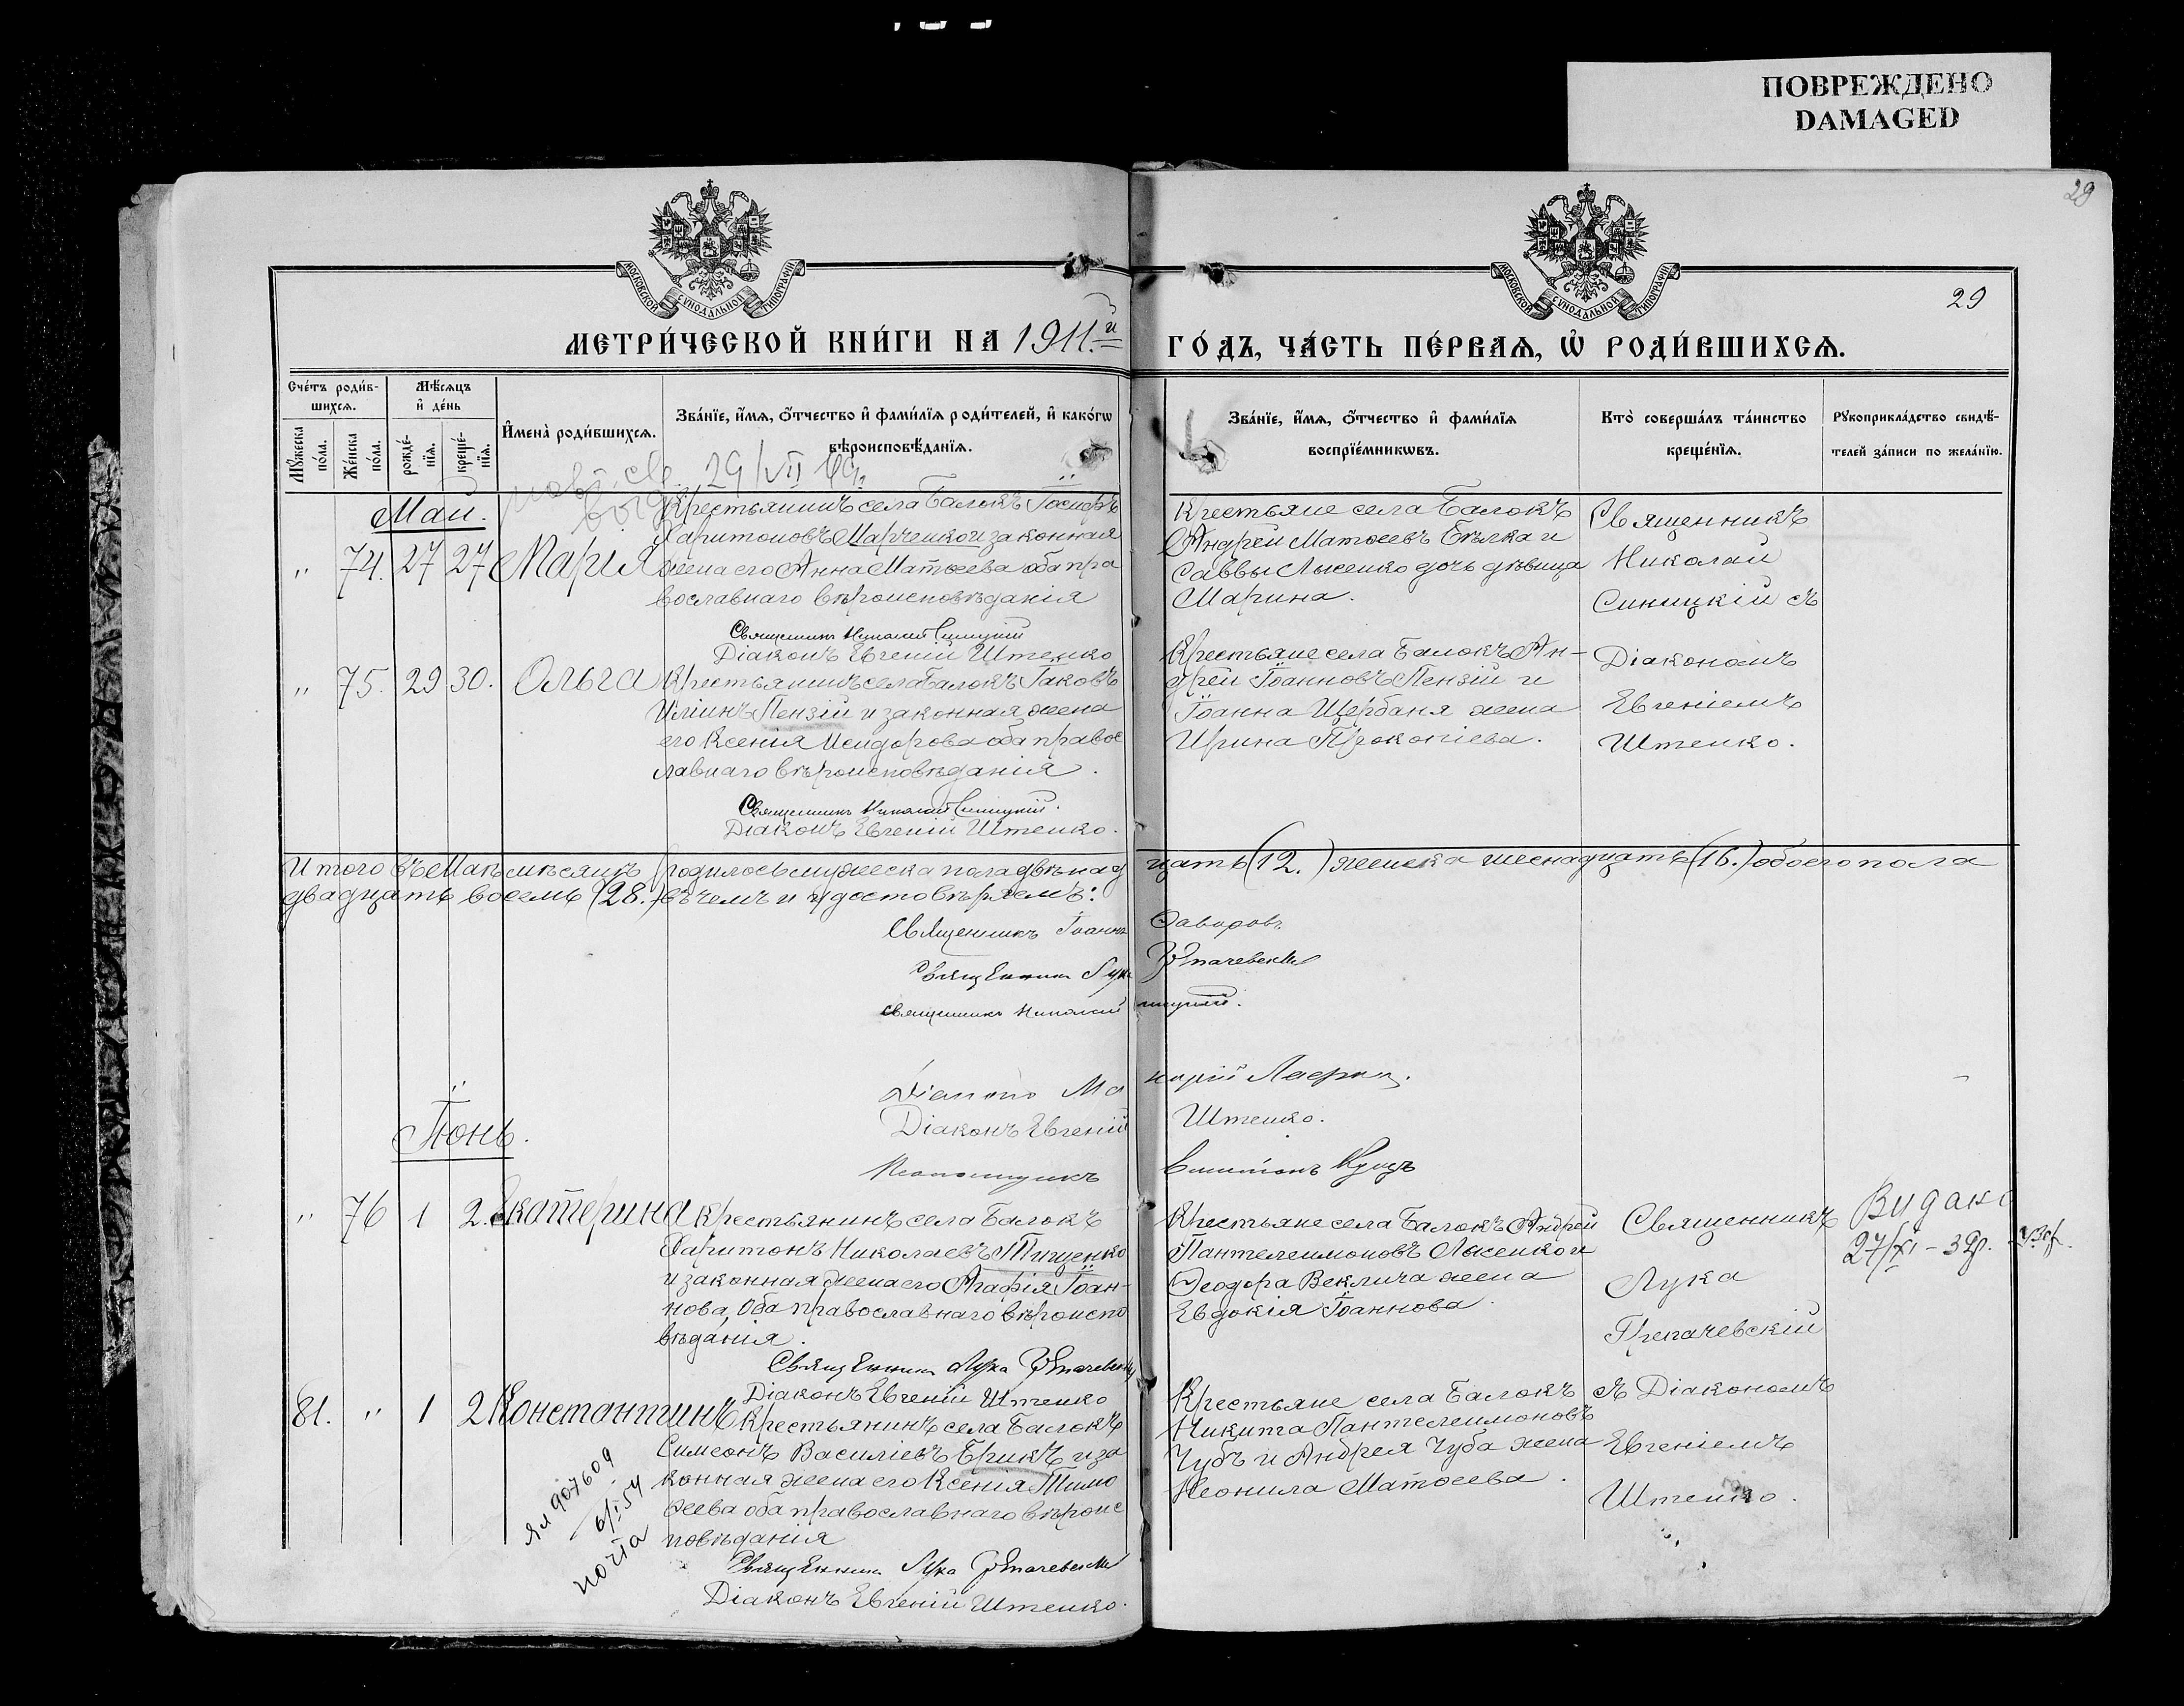 ПОВРЕЖДЕНО
DAMAGED
29
29
МОСКОВСКОЙ СѴНОДАЛЬНОЙ ТИПОГРАФІИ
МОСКОВСКОЙ СѴНОДАЛЬНОЙ ТИПОГРАФІИ
МЕТРИ́ЧЕСКОЙ КНИ́ГИ НА 1911.й ГО́ДЪ, ЧА́СТЬ ПЕ́РВАѦ, Ѡ҆ РОДИ́ВШИХСѦ.
Сче́тъ роди́в-
шихсѧ.
Мѣ́сѧцъ
и҆ де́нь
Мꙋ́жеска по́ла.
Же́нска по́ла.
рожде́-
нїѧ.
креще́-
нїѧ.
И҆мена̀ роди́вшихсѧ.
Зва́нїе, и҆́мѧ, ѻ҆́тчество и҆ фами́лїѧ роди́телей, и҆ како́гѡ
вѣроисповѣ́данїѧ.
Зва́нїе, и҆́мѧ, ѻ҆́тчество и҆ фами́лїѧ
воспрїе́мникѡвъ.
Кто̀ соверша́лъ та́инство
креще́нїѧ.
Рꙋкоприкла́дство свидѣ́-
телей за́писи по жела́нїю.
29/VII
Май.
" 74. 27 27 Марія
Крестьянинъ села Балокъ Іосифъ
Харитоновъ Марченко и законная
жена его Анна Матѳеева оба пра
вославнаго вѣроисповѣданія
Священникъ Николай Синицкій
Діаконъ Евгеній Штенко
Крестьяне села Балокъ
Андрей Матѳеевъ Бѣлка и
Саввы Лысенко дочь дѣвица
Марина.
Священникъ
Николай
Синицкій съ
" 75. 29 30. Ольга
Крестьянинъ села Балокъ Іаковъ
Иліинъ Пензій и законная жена
его Ксенія Исидорова оба правос
лавнаго вѣроисповѣданія.
Священникъ Николай Синицкій.
Діаконъ Евгеній Штенко.
Крестьяне села Балокъ Ан-
дрей Іоанновъ Пензій и
Іоанна Щербаня жена
Ирина Прокопіева.
Діакономъ
Евгеніемъ
Штенко.
Итого въ Маѣ мѣсяцѣ родилось мужеска пола двѣнад цать (12.) женска шеснадцать (16.) обоего пола
двадцать восемь (28.) въ чемъ и удостовѣряемъ:
Священникъ Іоаннъ Фаворовъ
Священникъ Лука
Священникъ Николай Синицкій.
Діаконъ
Діаконъ Евгеній Штенко.
Псаломщикъ
Іюнь.
" 76 1 2. Екатерина
Крестьянинъ села Балокъ
Харитонъ Николаевъ Тищенко
и законная жена его Агафія Іоан-
нова, оба православнаго вѣроиспо
вѣданія.
Священникъ Лука
Діаконъ Евгеній Штенко
Крестьяне села Балокъ Андрей
Пантелеимоновъ Лысенко и
Ѳеодора Веклича жена
Евдокія Іоаннова.
Священникъ
Лука
съ Діакономъ
Евгеніемъ
Штенко.
Видано
27/XI - 39.
81. " 1 2 Константинъ
Крестьянинъ села Балокъ
Симеонъ Василіевъ Ерикъ и за
конная жена его Ксенія Тимо
ѳеева оба православнаго вѣроис
повѣданія
Священникъ Лука
Діаконъ Евгеній Штенко.
Крестьяне села Балокъ
Никита Пантелеимоновъ
Чубъ и Андрея Чуба жена
Неонила Матѳеева.
ЯЛ 907609
6/I 54
почта